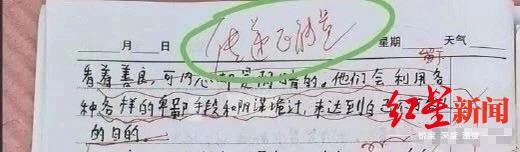 传递正能量
月 日 星期 天气
看着善良,可内心却是阴暗的。他们会利用各
种各样的卑鄙手段和阴谋诡计,来达到自己
的目的。
红星新闻